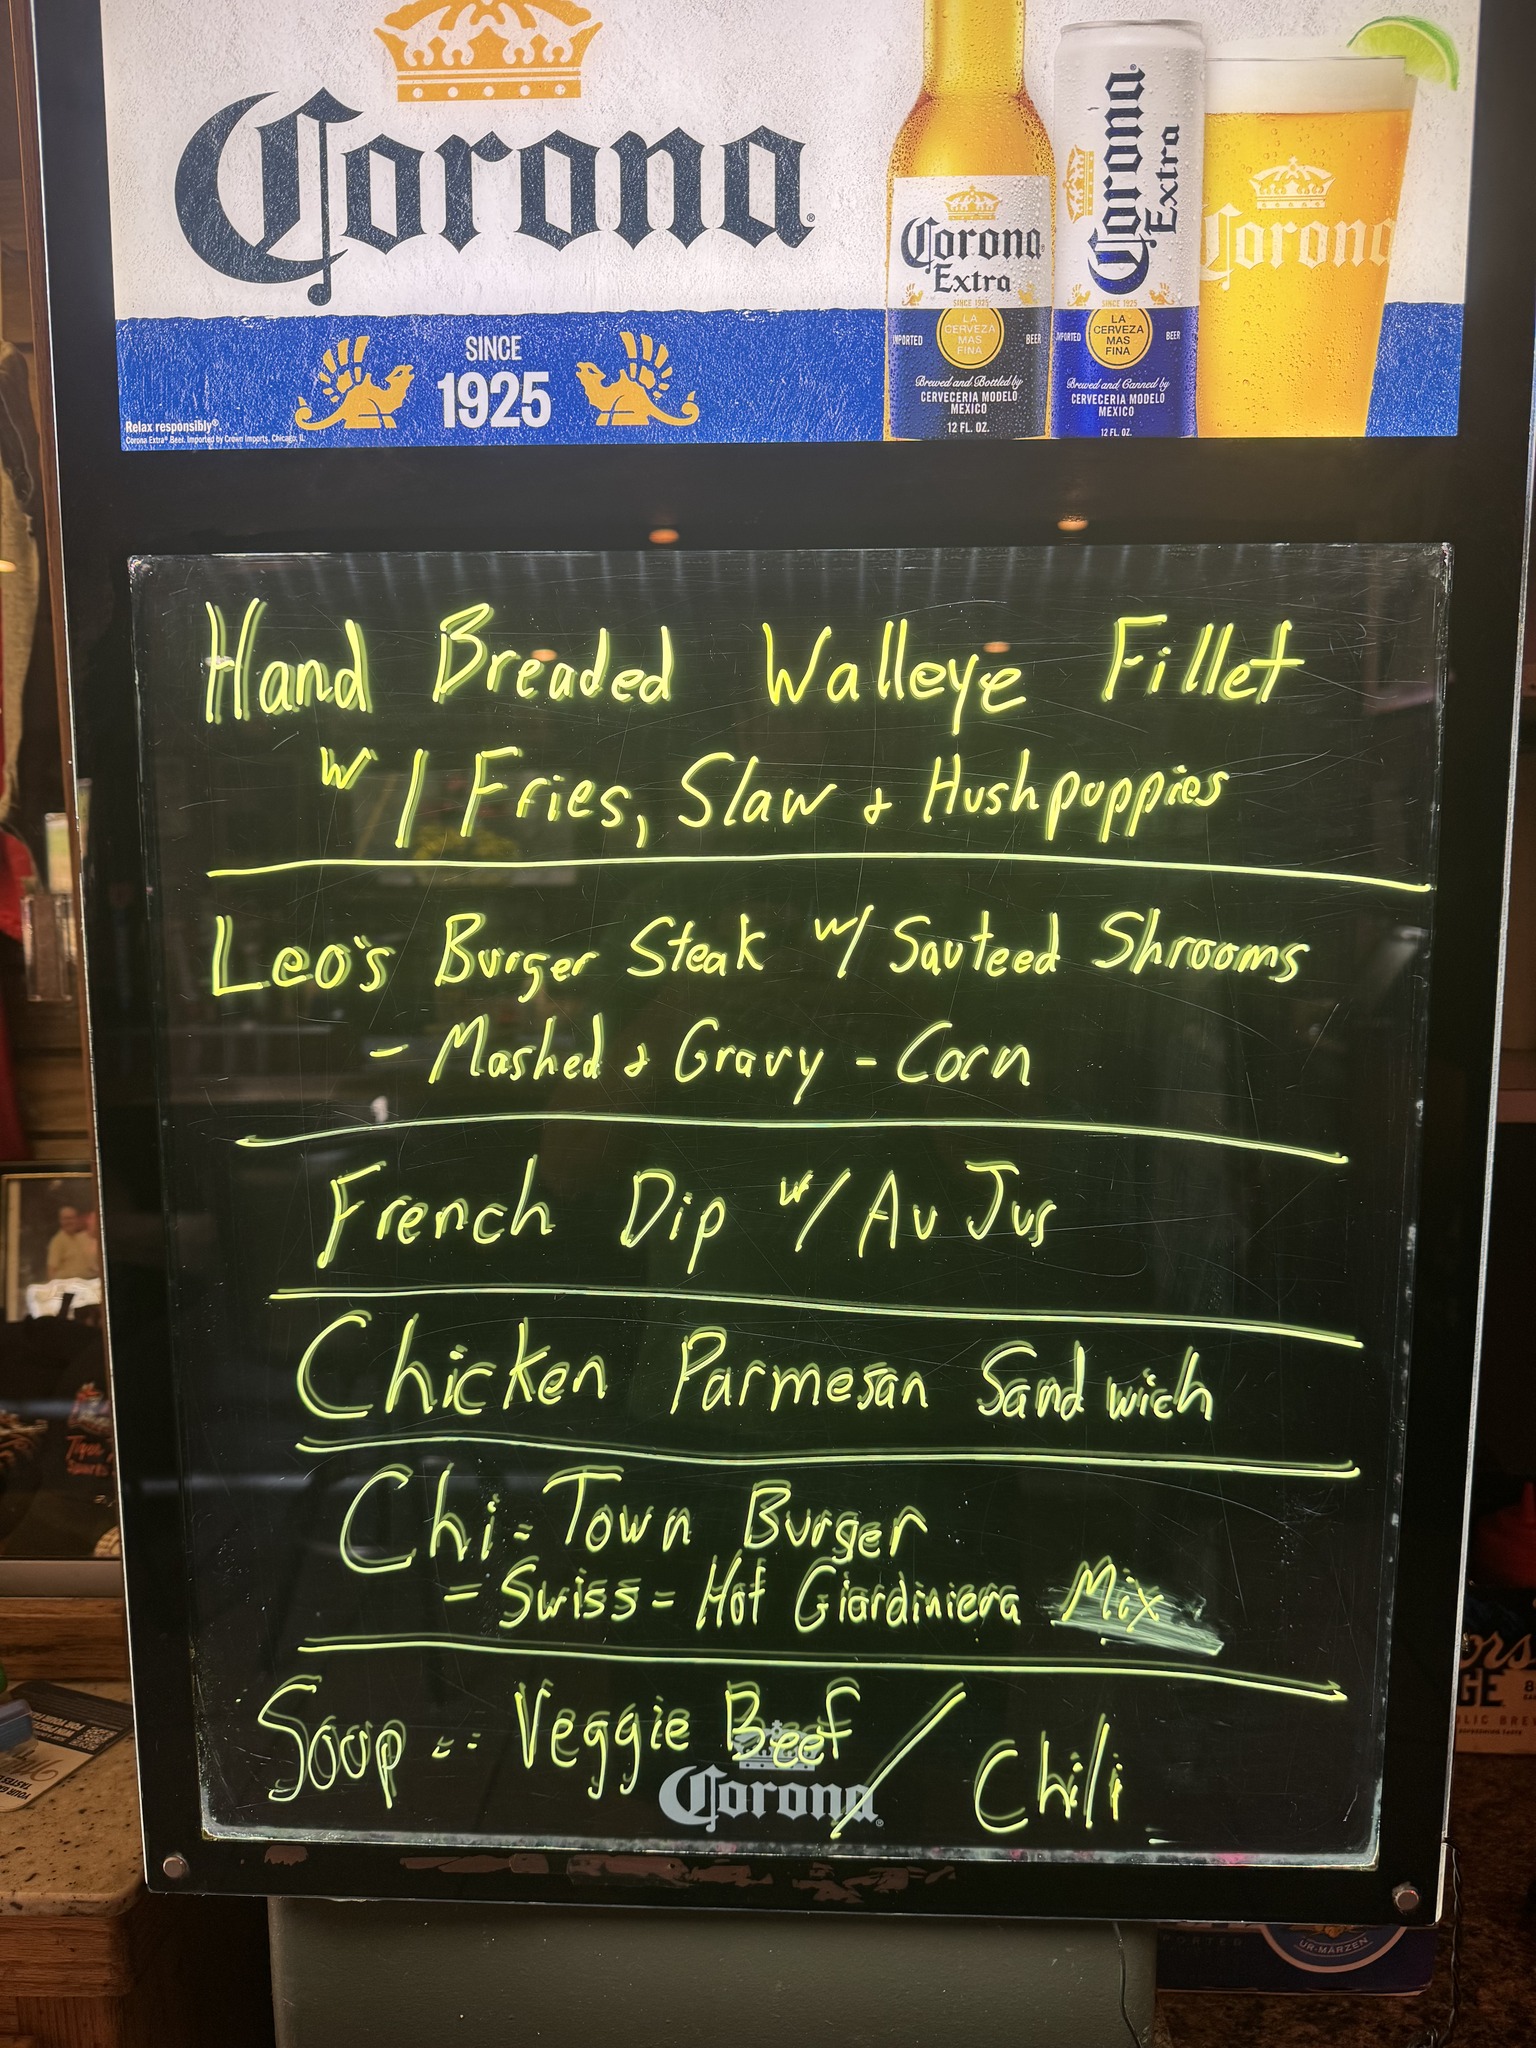 Corona
SINCE
1925
Relax responsibly®
Corona Extra® Beer. Imported by Crown Imports, Chicago, IL
Corona
Extra
SINCE 1925
LA
CERVEZA
MAS
FINA
IMPORTED
BEER
Brewed and Bottled by
CERVECERIA MODELO
MEXICO
12 FL. OZ.
Corona
Extra
SINCE 1925
LA
CERVEZA
MAS
FINA
IMPORTED
BEER
Brewed and Canned by
CERVECERIA MODELO
MEXICO
12 FL. OZ.
Corona
Hand Breaded Walleye Fillet
w/ Fries, Slaw & Hushpuppies
Leo's Burger Steak w/ Sauteed Shrooms
- Mashed & Gravy - Corn
French Dip w/ Au Jus
Chicken Parmesan Sandwich
Chi-Town Burger
- Swiss - Hot Giardiniera Mix
Soup -- Veggie Beef / Chili
Corona
UR-MÄRZEN